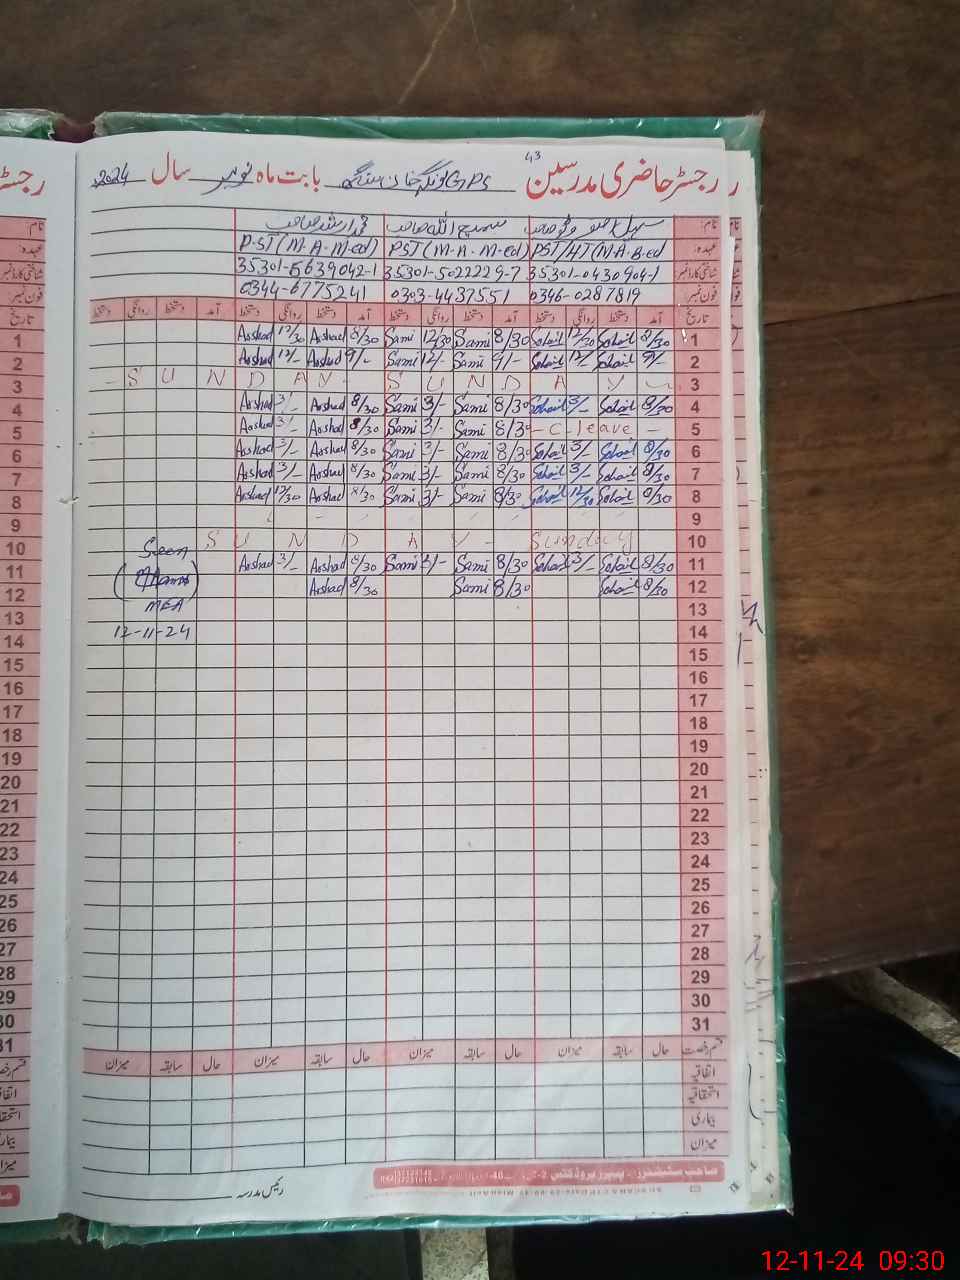 43
رجسٹر حاضری مدرسین GPS بابت ماہ نومبر سال 2024
نام:
عہدہ: PST/HT(M.A.B.ed PST(M.A.M.ed) P.ST(M.A.M.ed)
شناختی کارڈ نمبر 35301-0430904-1 35301-5022229-7 35301-5639042-1
فون نمبر: 0346-0287819 0303-4437551 0344-6775241
تاریخ آمد دستخط روانگی دستخط آمد دستخط روانگی دستخط آمد دستخط روانگی دستخط آمد دستخط روانگی دستخط
1 8/30 Sohail 12/30 Sohail 8/30 Sami 12/30 Sami 8/30 Arshad 12/30 Arshad
2 9/- Sohail 12/- Sohail 9/- Sami 12/- Sami 9/- Arshad 12/- Arshad
3 SUNDAY SUNDAY
4 8/30 Sohail 3/- Sohail 8/30 Sami 3/- Sami 8/30 Arshad 3/- Arshad
5 - C-leave - 8/30 Sami 3/- Sami 8/30 Arshad 3/- Arshad
6 8/30 Sohail 3/- Sohail 8/30 Sami 3/- Sami 8/30 Arshad 3/- Arshad
7 8/30 Sohail 3/- Sohail 8/30 Sami 3/- Sami 8/30 Arshad 3/- Arshad
8 8/30 Sohail 12/30 Sohail 8/30 Sami 3/- Sami 8/30 Arshad 12/30 Arshad
9
10 Sunday SUNDAY
Seen
11 8/30 Sohail 3/- Sohail 8/30 Sami 3/- Sami 8/30 Arshad 3/- Arshad
12 8/30 Sohail 8/30 Sami 8/30 Arshad
MEA
13
14 12-11-24
15
16
17
18
19
20
21
22
23
24
25
26
27
28
29
30
31
قسم رخصت حال سابقہ میزان حال سابقہ میزان حال سابقہ میزان حال سابقہ میزان
اتفاقیہ
استحقاقیہ
بیماری
میزان
رئیس مدرسہ
12-11-24 09:30